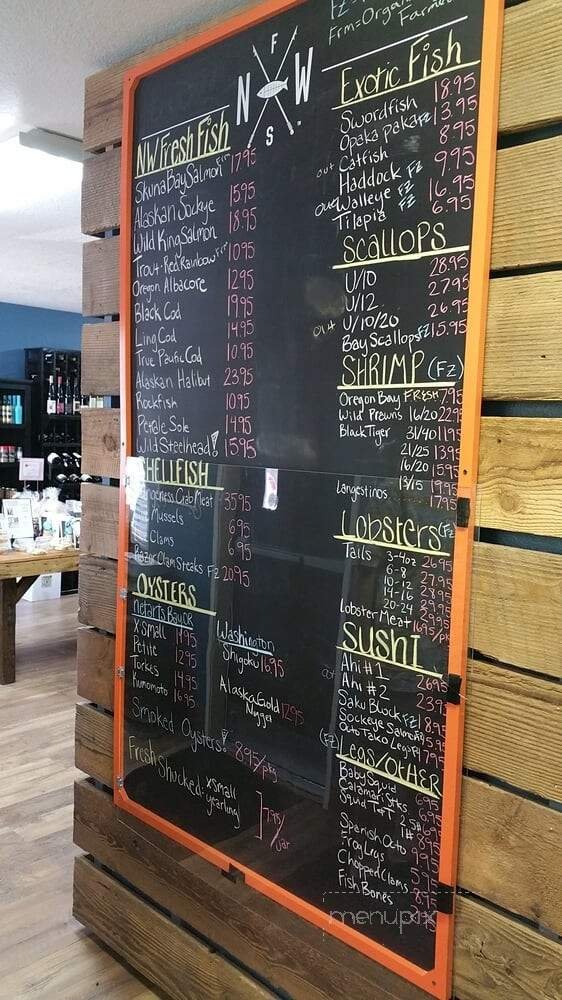 N F W S
Fz =
Frm=Organic
Farmed
NW Fresh Fish
Skuna Bay Salmon Frm 17.95
Alaskan Sockye 15.95
Wild King Salmon 18.95
Trout-Red Rainbow Frm 10.95
Oregon Albacore 12.95
Black Cod 19.95
Ling Cod 14.95
True Pacific Cod 10.95
Alaskan Halibut 23.95
Rockfish 10.95
Petrale Sole 14.95
Wild Steelhead! 15.95
SHELLFISH
Dungeness Crab Meat 35.95
Mussels 6.95
Clams 6.95
Razor Clam Steaks Fz 20.95
OYSTERS
Netarts Bay OR
X small 11.95
Petite 12.95
Torkes 14.95
Kumomoto 16.95
Washington
Shigoku 16.95
Alaska Gold
Nugget 12.95
Smoked Oysters! 8.95/pkg
Fresh Shucked: xsmall
yearling 7.95/jar
Exotic Fish
Swordfish 18.95
Opaka paka Fz 13.95
out Catfish 8.95
Haddock Fz 9.95
out Walleye Fz 16.95
Tilapia Fz 6.95
Scallops
U/10 28.95
U/12 27.95
out U/10/20 26.95
Bay Scallops Fz 15.95
SHRIMP (Fz)
Oregon Bay FRESH 7.95
Wild Prawns 16/20 22.95
Black Tiger 31/40 11.95
21/25 13.95
16/20 15.95
13/15 19.95
Langestinos 17.95
Lobsters (Fz)
Tails 3-4oz 26.95
6-8 27.95
10-12
14-16 28.95
20-24
Lobster Meat 16.95/pk
SUSHI
out Ahi #1 26.95
Ahi #2 23.95
Saku Block Fz 18.95
Sockeye Salmon Fz 15.95
Octo Tako Legs Fz 17.95
(Fz) Legs/Other
Baby Squid 6.95
Calamari Stks 6.95
Squid T+T 2.5# 6.95
1#
Spanish Octo
Frog Legs
Chopped Clams
Fish Bones
menupix